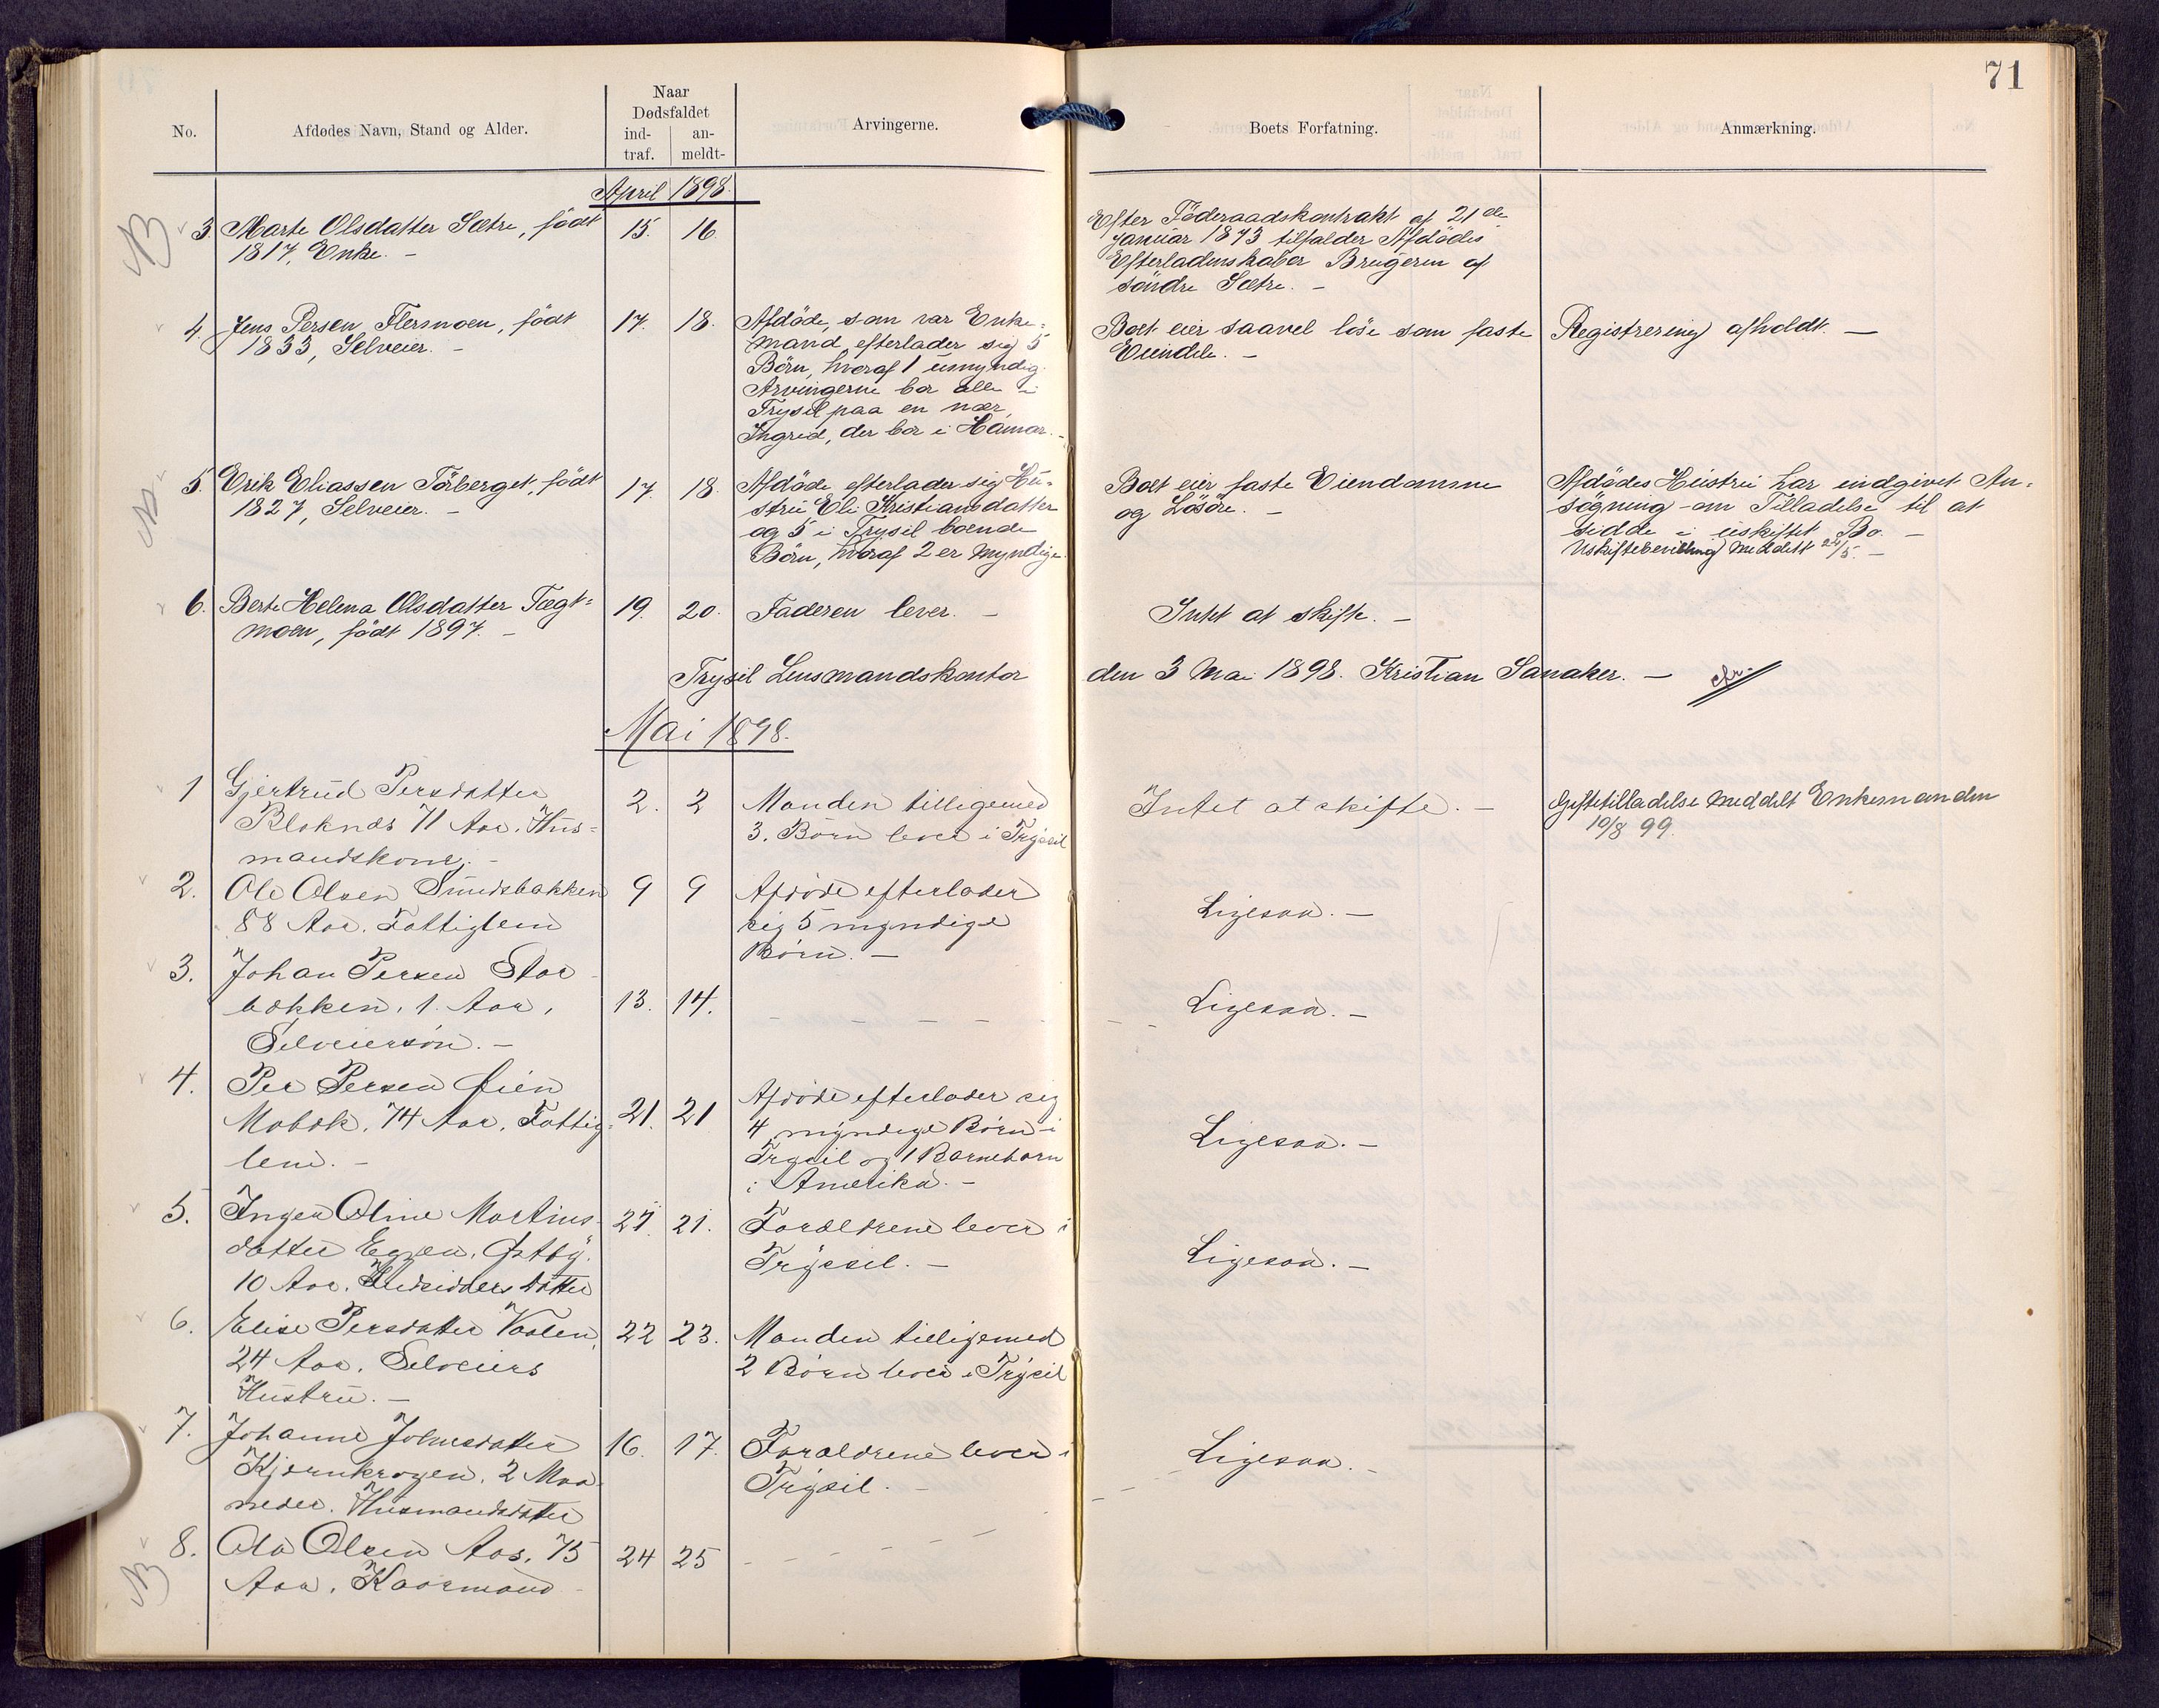 71
No.
Afdødes Navn, Stand og Alder.
Naar
Dødsfaldet
ind-
traf.
an-
meldt-
Arvingerne.
Boets Forfatning.
Anmærkning.
April 1898.
3. Marte Olsdatter Sætre, født
1817, Enke. -
15. 16.
Efter Föderaadskontrakt af 21de
Januar 1873 tilfalder Afdödes
Efterladenskaber Brugeren af
söndre Sætre. -
4. Jens Persen Flermoen, født
1833, Selveier. -
17. 18.
Afdöde, som var Enke-
mand, efterlader sig 5
Börn, hvoraf 1 umyndig.
Arvingerne bor alle i
Trysil paa en nær,
Ingrid, der bor i Hamar. -
Boet eier saavel löse som faste
Eiendele. -
Registrering afholdt. -
5. Erik Eliassen Törberget, født
1827, Selveier. -
17. 18.
Afdöde efterlader sig Hu-
stru Eli Kristiansdatter
og 5 i Trysil boende
Börn, hvoraf 2 er myndige.
Boet eier faste Eiendomme
og Lösöre. -
Afdödes Hustru har indgivet An-
sögning om Tilladelse til at
sidde i uskiftet Bo. -
Uskiftebevilling meddelt 24/5. -
6. Berte Helena Olsdatter Tægt-
moen, født 1897. -
19. 20.
Faderen lever. -
Intet at skifte. -
Trysil Lensmandskontor den 3 Mai 1898. Kristian Sanaker. -
Mai 1898.
1 Gjertrud Persdatter
Bloknæs 71 Aar. Hus-
mandskone. -
2. 2
Manden tilligemed
3. Børn lever i Trysil
Intet at skifte. -
Giftetilladelse meddelt Enkemanden
10/8 99.
2. Ole Olsen Smedsbakken
88 Aar. Fattiglem
9 9
Afdøde efterlader
sig 5 myndige
Børn. -
Ligesaa. -
3. Johan Persen Stor
bækken, 1. Aar,
Selveiersøn. -
13. 14.
Ligesaa. -
4. Per Persen
Mobæk, 74 Aar, Fattig-
lem. -
21. 21
Afdøde efterlader sig
4 myndige Børn i
Trysil og 1 Barnebarn
i Amerika. -
Ligesaa. -
5. Inger Oline Martius-
datter Eggen, Østby.
10 Aar. Indsidders datter
21. 21.
Forældrene lever i
Trysil. -
Ligesaa. -
6. Elise Persdatter
24 Aar. Selveiers
Hustru. -
22 23.
Manden tilligemed
2 Børn lever i Trysil
7. Johanne
Kjernkrogen. 2 Maa-
neder. Husmandsdatter
16. 17.
Forældrene lever i
Trysil. -
Ligesaa. -
8. Ola Olsen Aas, 75
Aar. Kaarmand
24 25